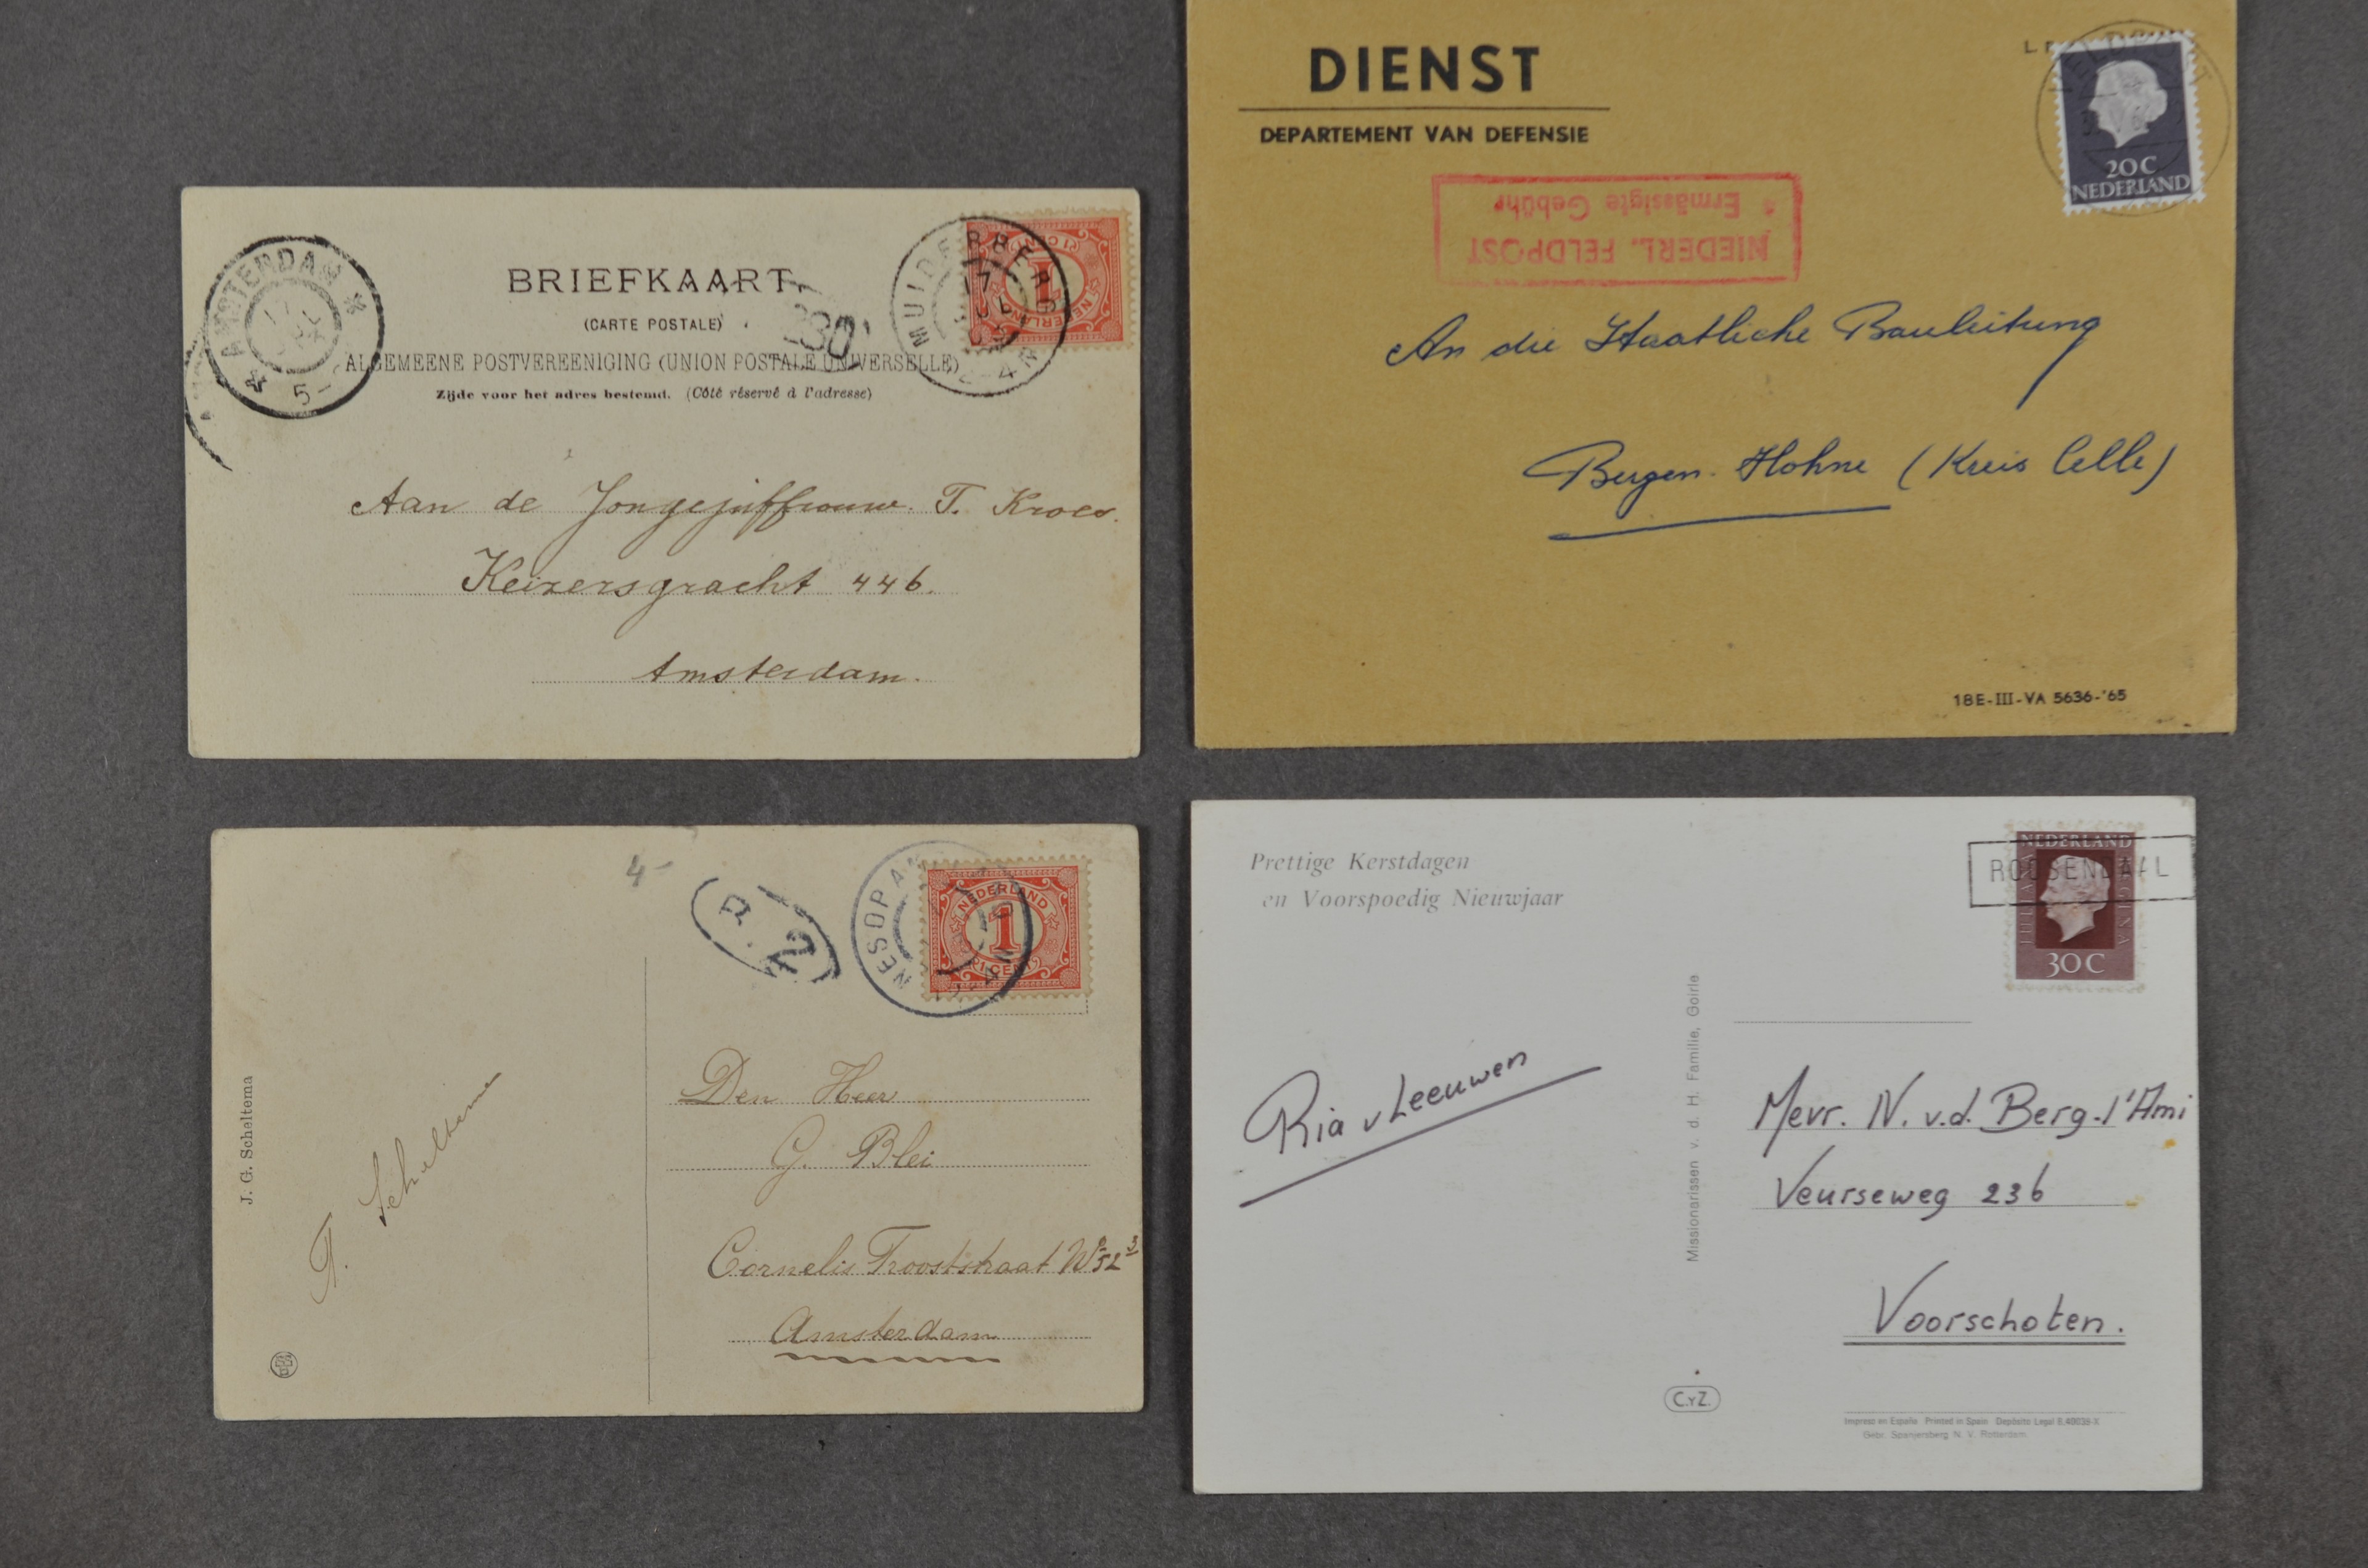 BRIEFKAART.
(CARTE POSTALE)
ALGEMEENE POSTVEREENIGING (UNION POSTALE UNIVERSELLE)
Zijde voor het adres bestemd. (Côté réservé à l'adresse)
AMSTERDAM
5-
230
MUIDERBERG
17 JUL
1
Aan de Jongejuffrouw. T. Kroes.
Keizersgracht 446.
Amsterdam.
DIENST
DEPARTEMENT VAN DEFENSIE
NIEDERL. FELDPOST
Ermässigte Gebühr
VELDPOST
20C
NEDERLAND
An die Staatliche Bauleitung
Bergen-Hohne (Kreis Celle)
18E-III-VA 5636-'65
4-
NEDERLAND
1
1 CENT
J. G. Scheltema
Scheltema
Den Heer
G. Blei
Cornelis Trooststraat No 52 3
Amsterdam
Prettige Kerstdagen
en Voorspoedig Nieuwjaar
NEDERLAND
ROOSENDAAL
JULIANA REGINA
30C
Ria v Leeuwen
Missionarissen v. d. H. Familie, Goirle
Mevr. N. v.d. Berg-l'Ami
Veurseweg 236
Voorschoten.
C.YZ.
Impreso en España Printed in Spain Depósito Legal B.40039-X
Gebr. Spanjersberg N. V. Rotterdam